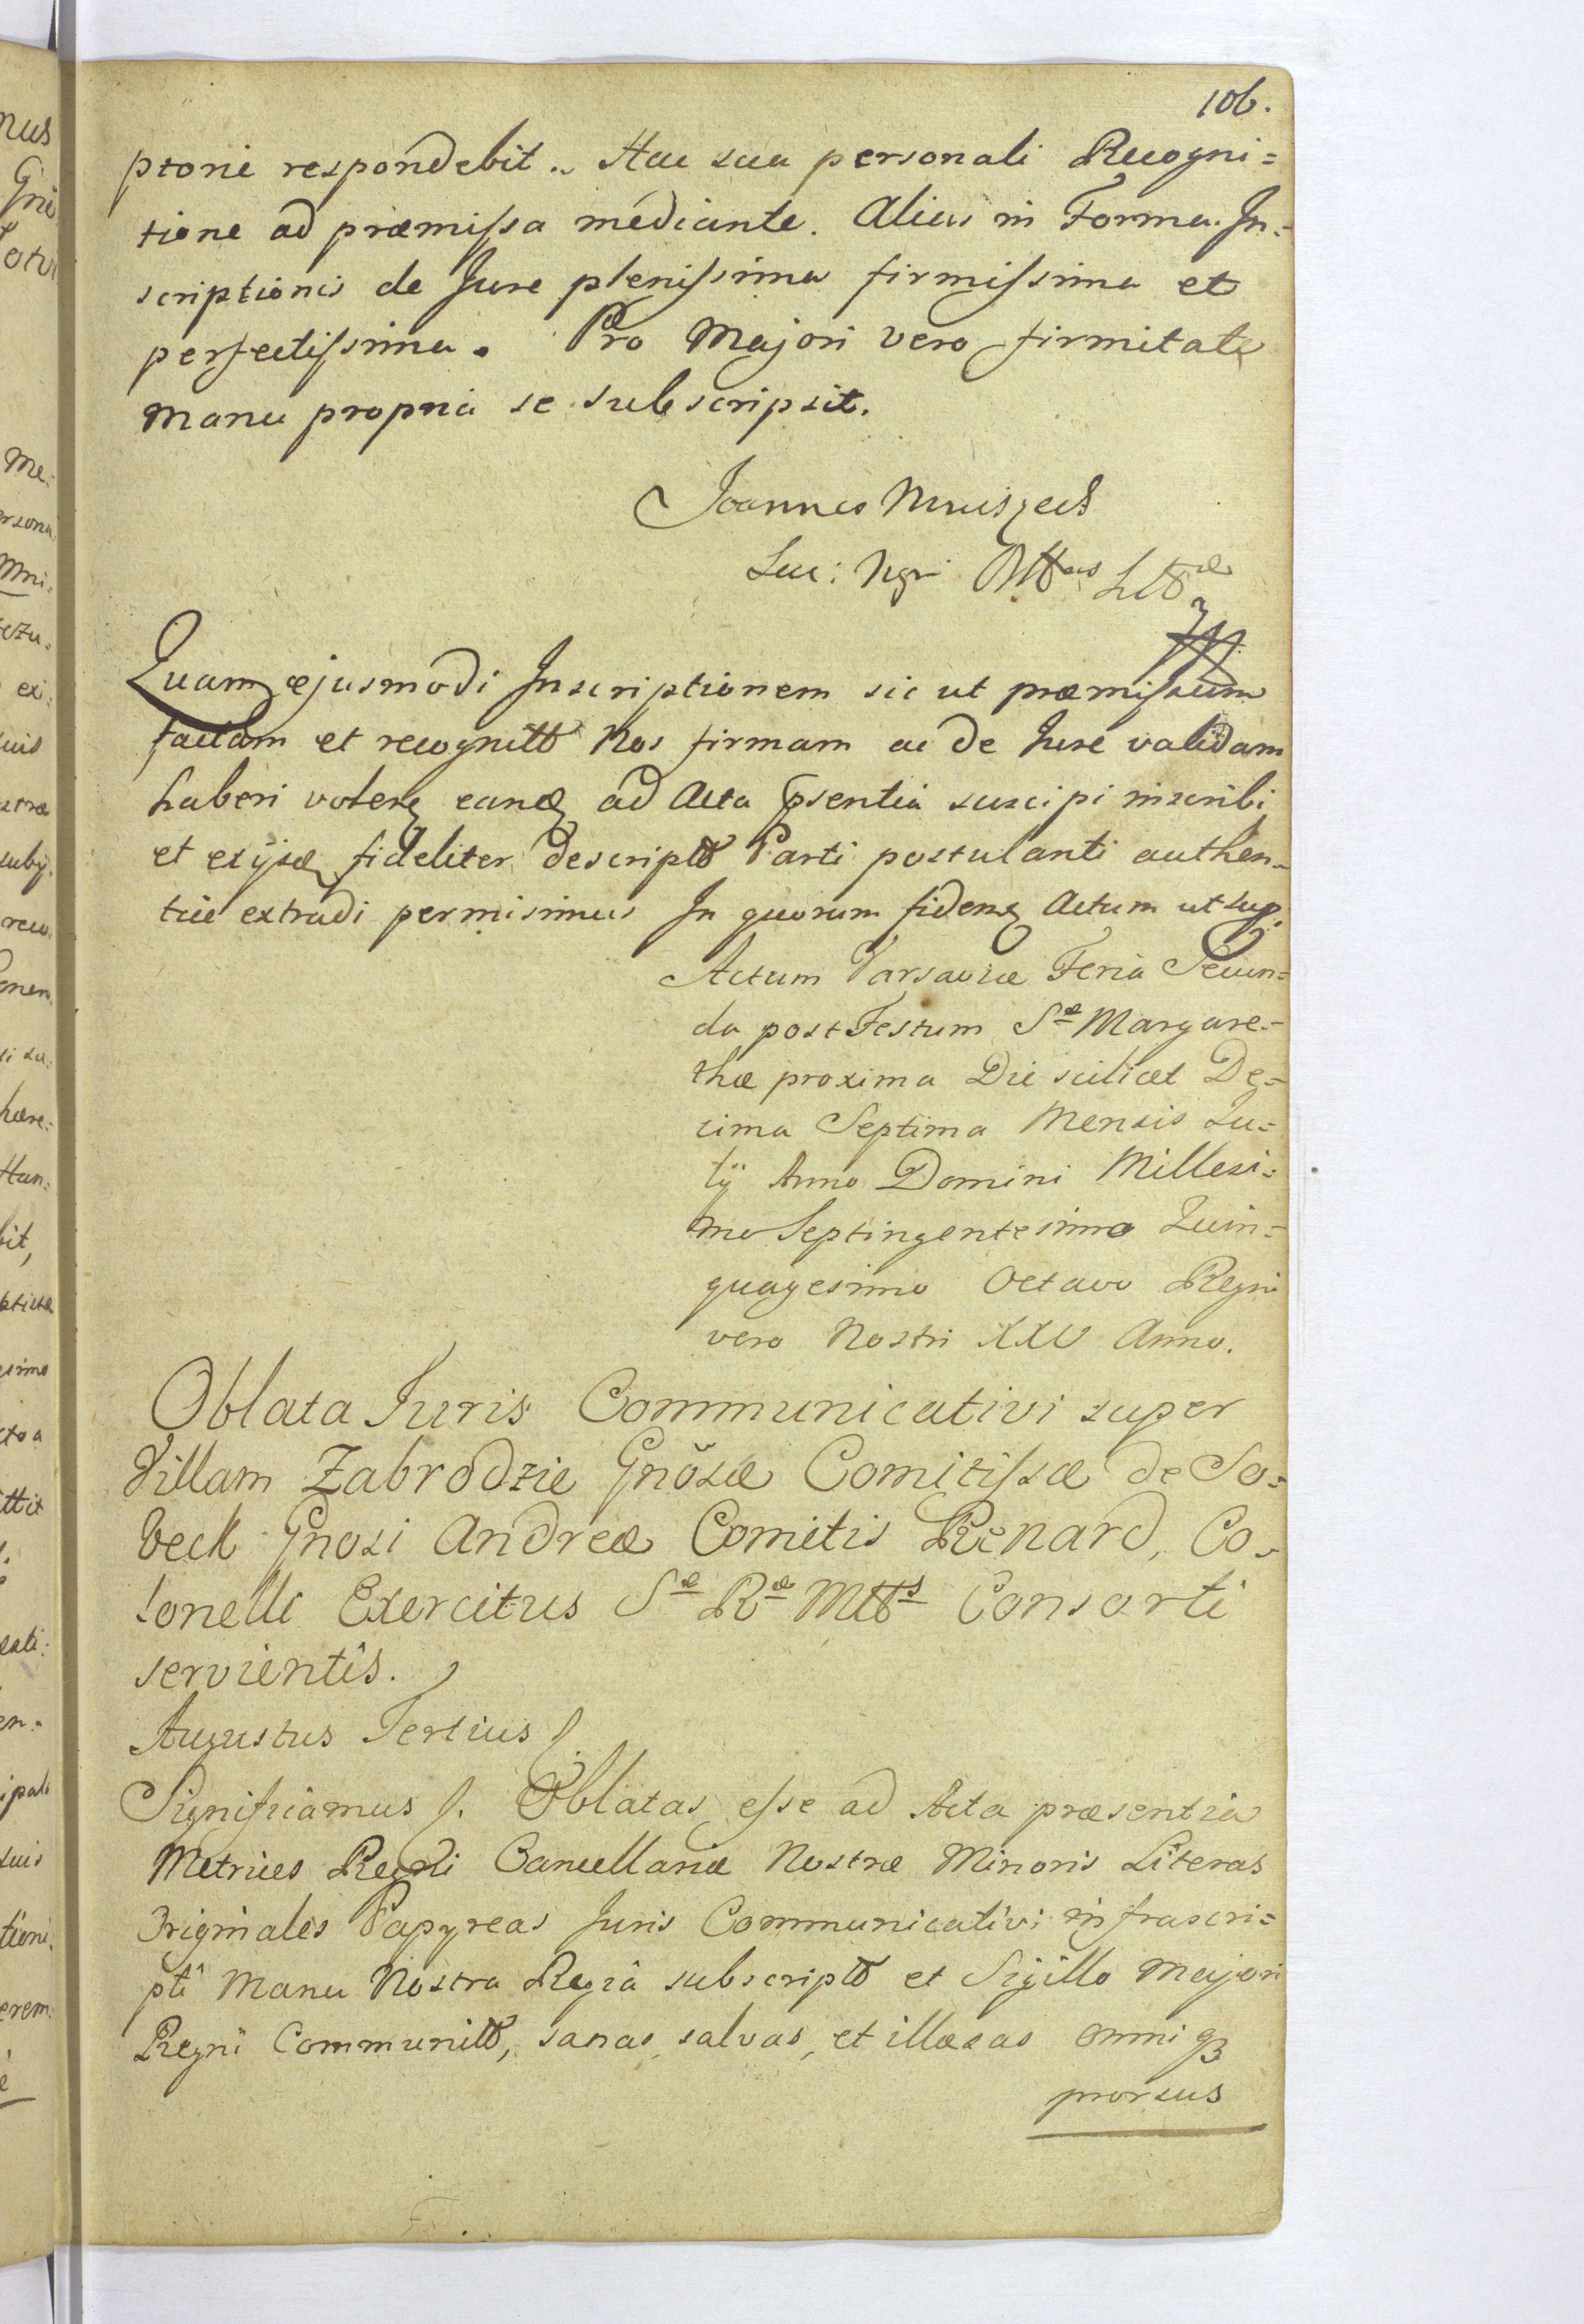 106.
ptorie respondebit. Hac sua personali Recogni=
tione ad præmissa mediante. Alias in Forma In=
scriptionis de Jure plenissima firmissima et
perfectissima. Pro Majori vero firmitate
Manu propria se subscripsit.
Joannes Mniszech
Suc:
Quam ejusmodi Inscriptionem sic ut præmissum
factam et recognitt Nos firmam ac de Jure validam
haberi volenq eanq ad Acta psentia suscipi inscribi
et exijsq fideliter descriptt Parti postulanti authen=
tice extradi permisimus In quorum fidemq Actum ut sup.
Actum Varsaviæ Feria Secun=
da post Festum Sæ Margare=
thæ proxima Die scilicet De=
cima Septima Mensis Ju=
lÿ Anno Domini Millesi=
mo Septingentesimo Quin=
quagesimo Octavo Regni
vero Nostri XXV Anno.
Oblata Juris Communicativi super
Villam Zabrodzie Gnõsæ Comitissæ de So=
beck Gnosi Andreæ Comitis Renard, Co=
lonelli Exercitus Sæ Ræ Mttis Consorti
servientis.
Augustus Tertius
Significamus Oblatas esse ad Acta præsentia
Metrices Regni Cancellariæ Nostræ Minoris Literas
Originales Papyreas Juris Communicativi infrascri=
pti Manu Nostra Regia subscriptt et Sigillo Majori
Regni Communitt, sanas, salvas, et illæsas omniq3
prorsus